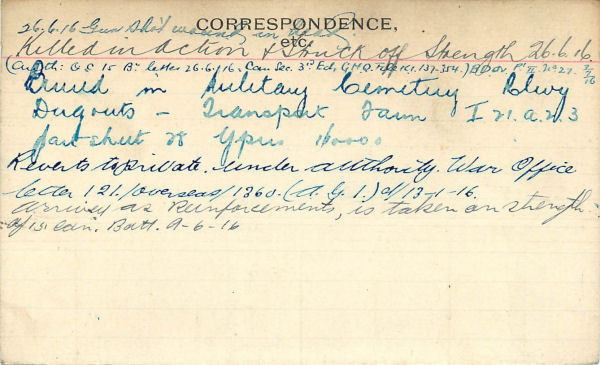 CORRESPONDENCE,
etc.
26.6.16 Gun Shot wound in head.
Killed in action & Struck off Strength 26.6.16
(Auth: O.C. 15 Bn letter 26.6.16. Can Sec. 3rd Ech, G.H.Q. K1.137-354.) BO Pt II. No 27.
Buried in Military Cemetery Rlwy
Dugouts - Transport Farm I 21.a.2.3
part sheet 28 Ypres
Reverts to private. under authority. War Office
letter 121/overseas/1360. (A.G.1.) d/13-1-16.
Arrived as Reinforcements, is taken on strength
of 15 Can. Batt. 9-6-16